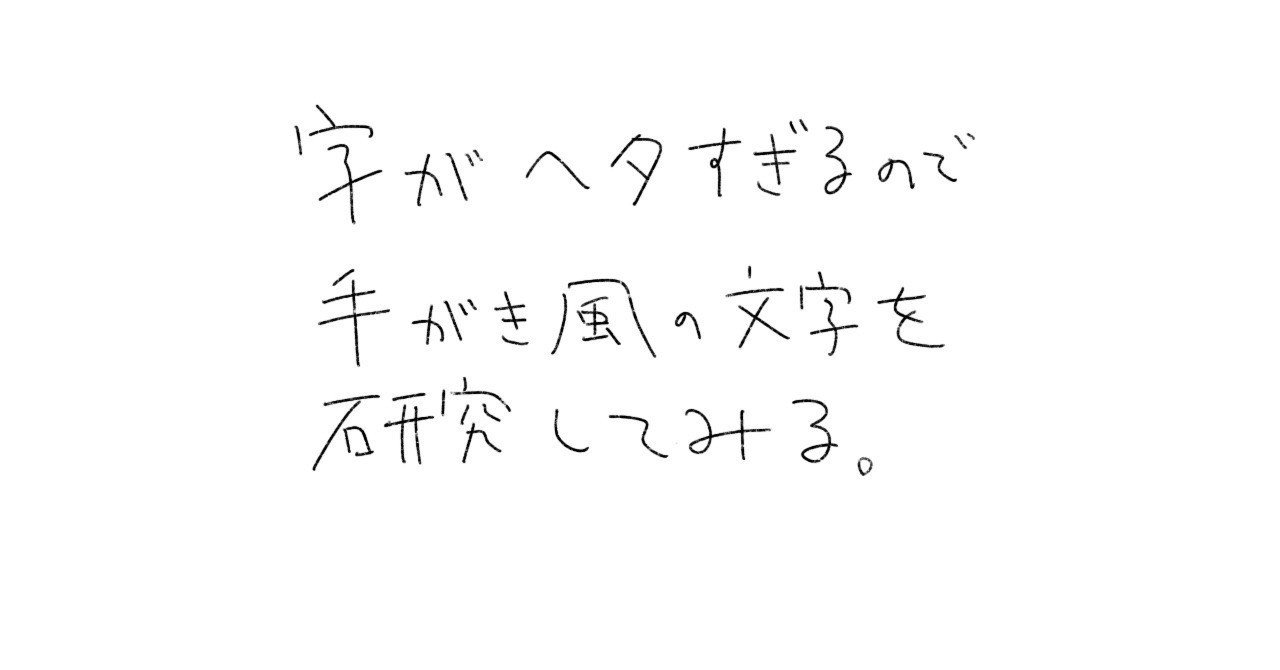 字がヘタすぎるので
手がき風の文字を
研究してみる。